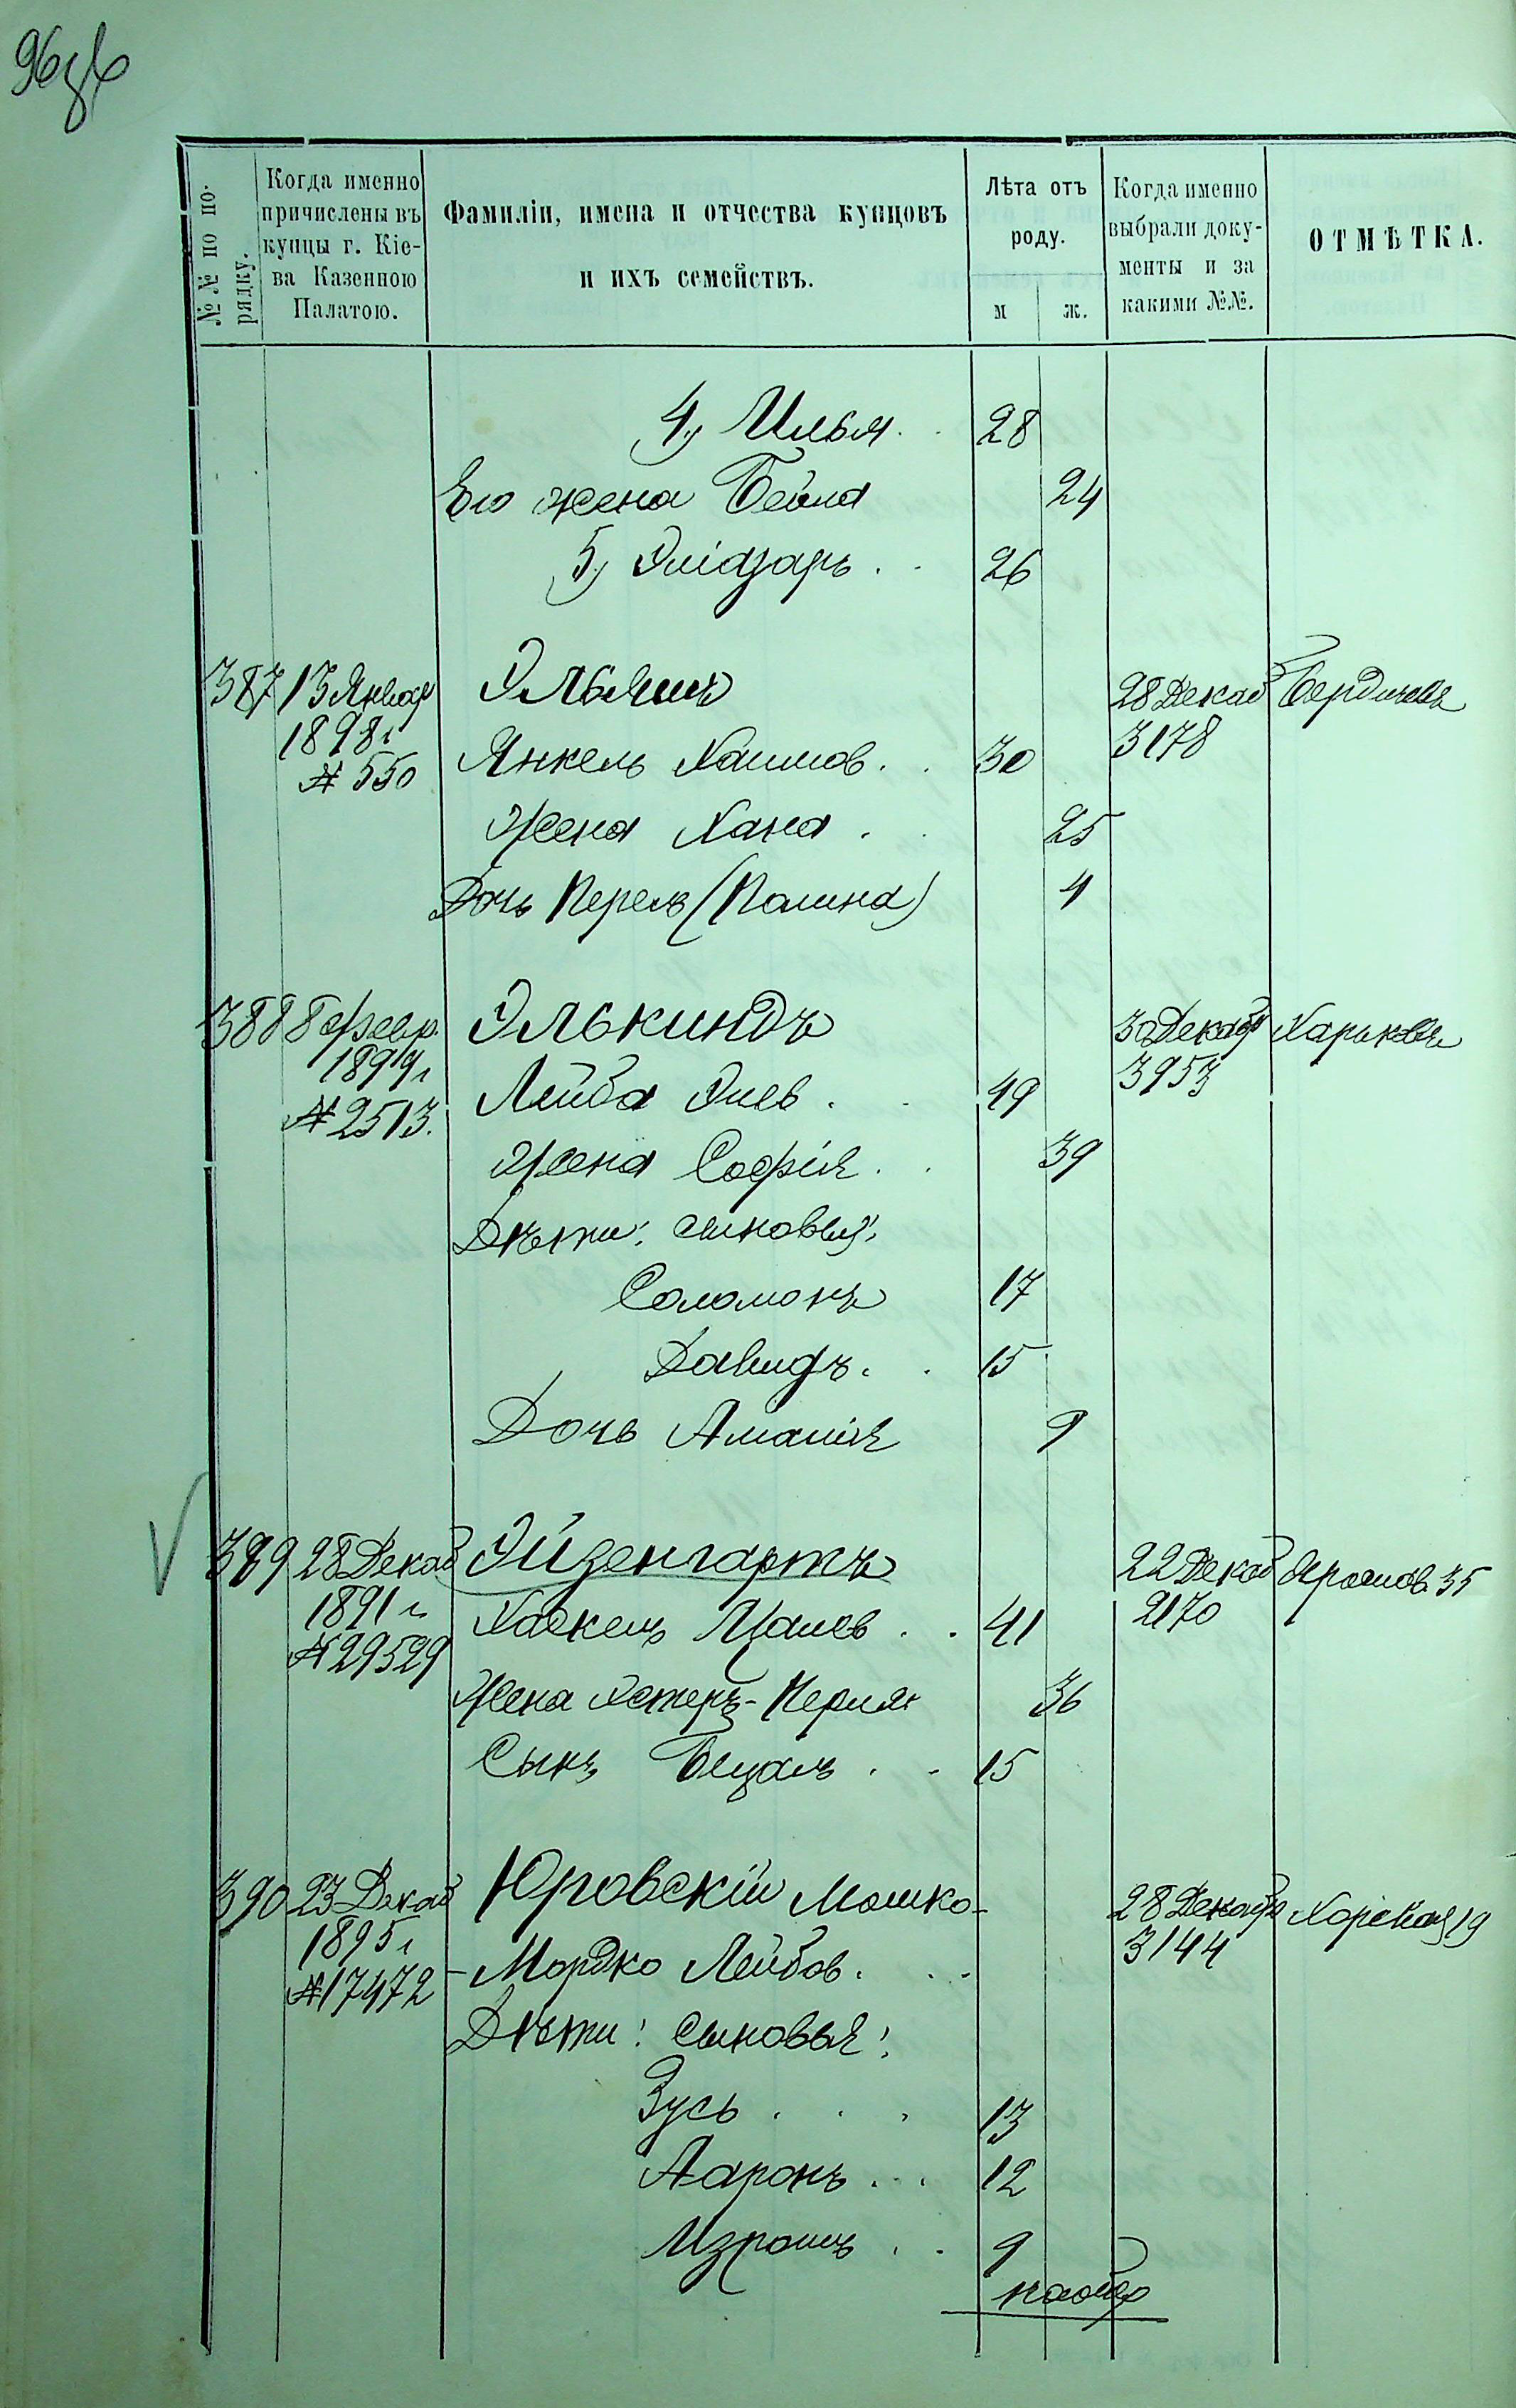 96об
№№ по порядку.
Когда именно причислены въ купцы г. Кіева Казенною Палатою.
Фамиліи, имена и отчества купцовъ и ихъ семействъ.
Лѣта отъ роду.
м ж.
Когда именно выбрали документы и за какими №№.
ОТМѢТКА.
4, Илья . . 28
Его жена Бейла 24
5, Эліазаръ . . 26
387 13 Январ Эльяшъ 28 Декаб Бердичевъ
1898 г 3178
№ 550 Янкель Хаимов . . 30
Жена Хана . . 25
Дочь Перель (Полина) 4
388 8 Февр. Элькиндъ 30 Декабр Харьковъ
1899 г 3953
№ 2513. Лейба Элев . . 49
Жена Софія . . 39
Дѣти: сыновья:
Соломонъ 17
Давидъ . . 15
Дочь Амалія 9
389 28 Декаб Эйзенгартъ 22 Декаб Ярослав 35
1891 г 2170
№ 29529 Хаскель Цалев . . 41
Жена Эстеръ-Перля 36
Сынъ Бецаль . . 15
390 23 Декаб Юровскій Мошко- 28 Декабр Хорівая 19
1895 г 3144
№ 17472 -Мордко Лейбов . . .
Дѣти: Сыновья:
Зусь . . . 13
Ааронъ . . . 12
Израиль . . 9
на обор